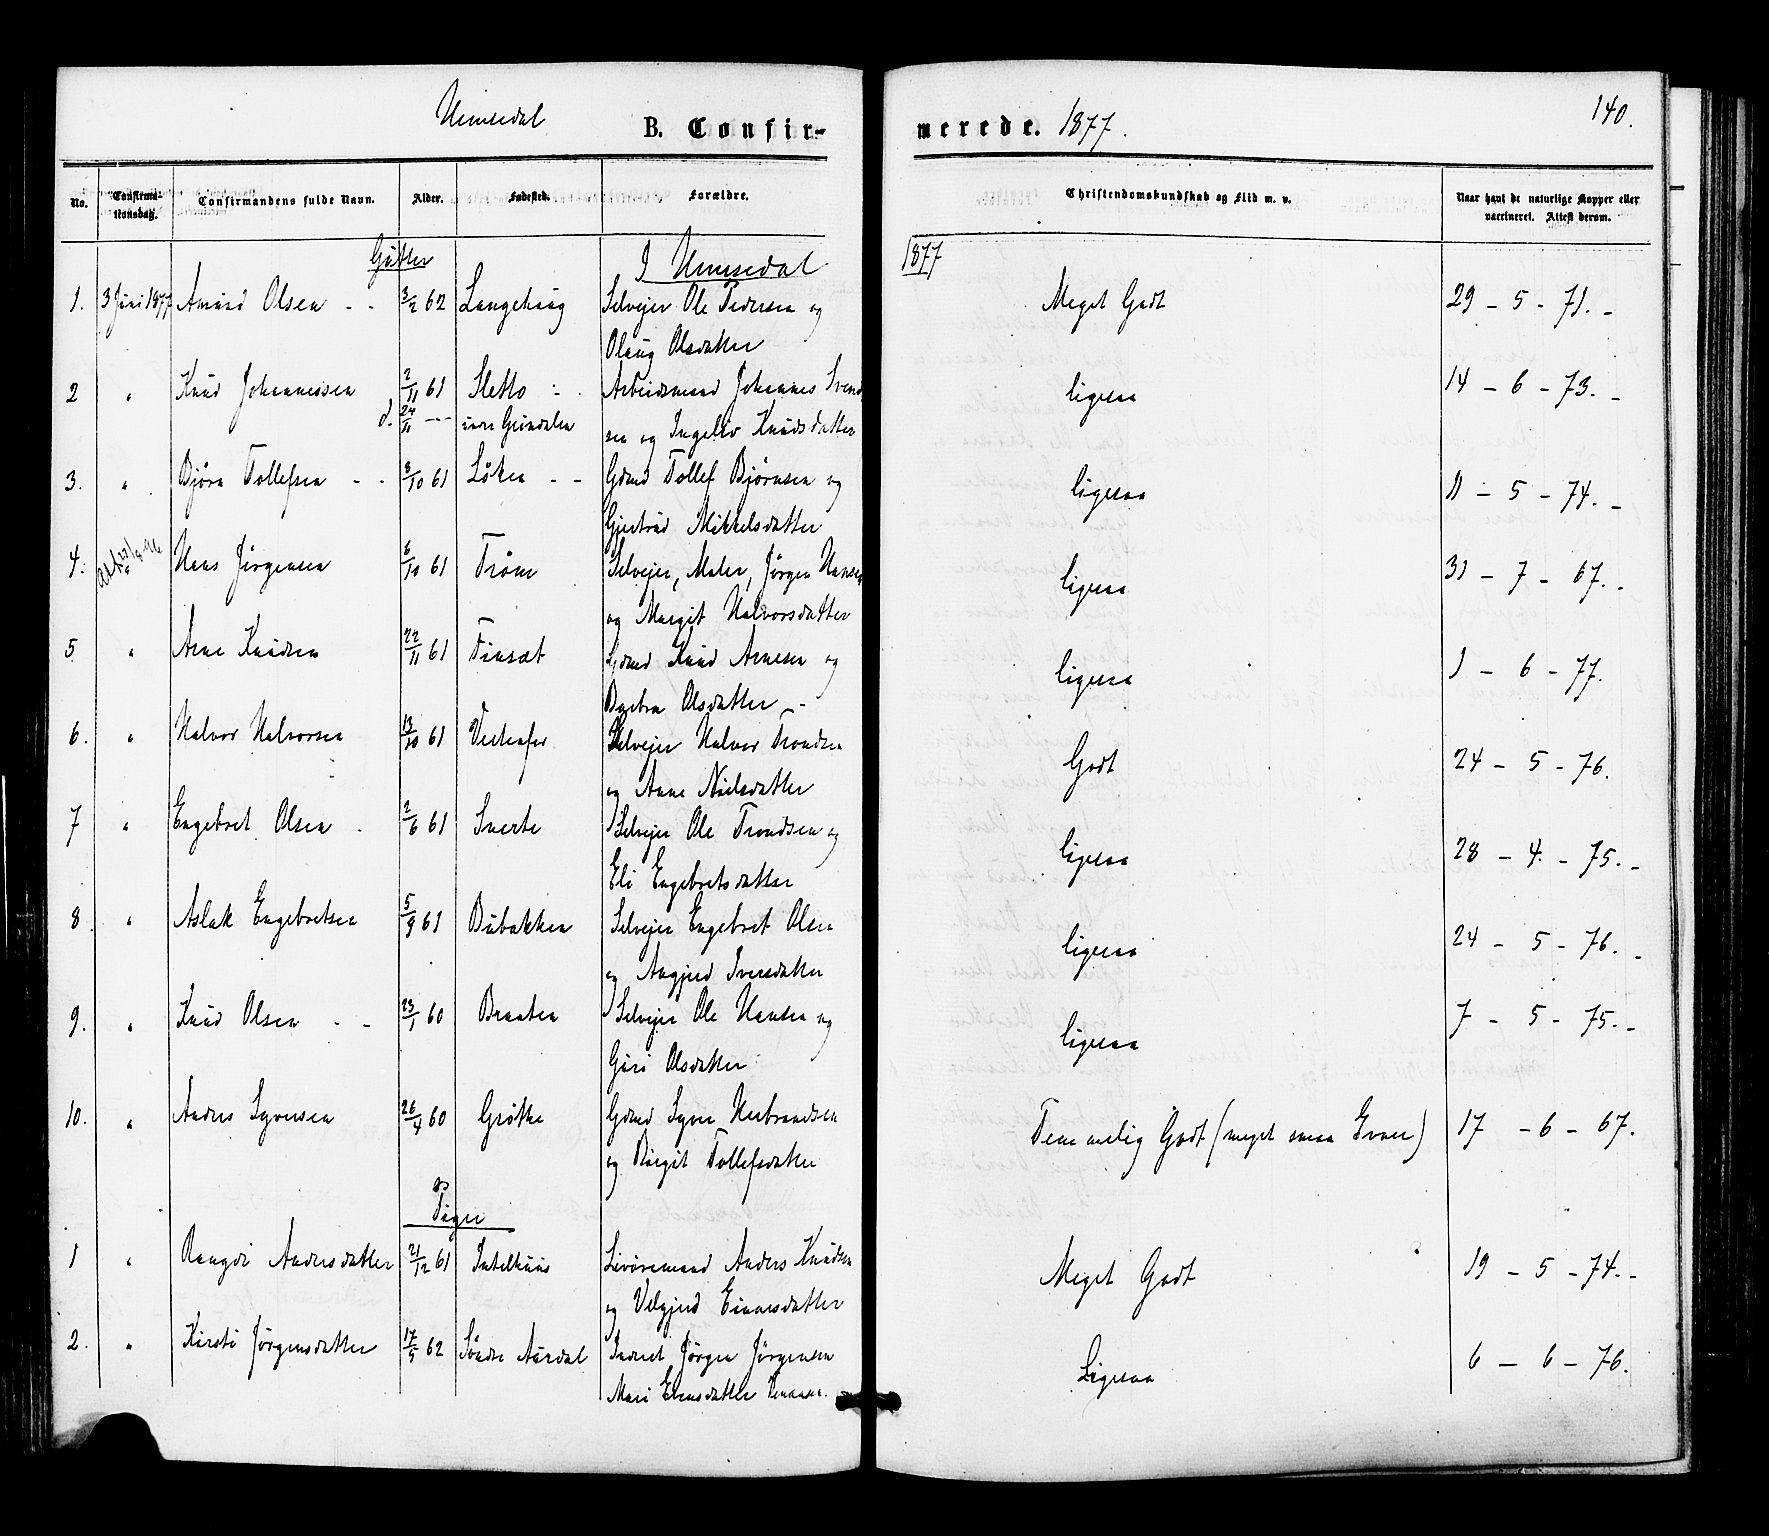 Hemsedal
B. Confir-
merede. 1877.
140.
No.
Confirma-
tionsdag.
Confirmandens fulde Navn.
Alder.
Fødested.
Forældre.
Christendomskundskab og Flid m. v.
Naar havt de naturlige Kopper eller
vaccineret. Attest derom.
Gutter
I Hemsedal
1877
1. 3 Juni 1877 Amund Olsen - - 3/2 62 Langehaug Selveier Ole Pedersen og Meget Godt 29 - 5 - 71. -
Olaug Olsdatter
2 " Knud Johannessen 2/11 61 Sletto - - Arbeidsmand Johannes Svend ligesaa 14 - 6 - 73. -
d. 24/11 --- Grøndalen
sen og Ingeb Knudsdatter
3. " Bjørn Tollefsen - - 8/10 61 Løken - - Gdmd Tollef Bjørnsen og ligesaa 11 - 5 - 74. -
Gjertrud Mikkelsdatter
4. " Hans Jørgensen 6/10 61 Trøim Selveier, Maler, Jørgen Hansen ligesaa 31 - 7 - 67. -
og Margit Halvorsdatter
5 " Arne Knudsen 22/11 61 Finsæt Gdmd Knud Arnesen og ligesaa 1 - 6 - 77.
Barbra Olsdatter -
6. " Halvor Halvorsen 13/10 61 Selveier Halvor Trondsen Godt 24 - 5 - 76.
og Anne Nielsdatter
7 " Engebret Olsen 2/6 61 Snerte Selveier Ole Trondsen og ligesaa 28 - 4. - 75. -
Eli Engebretsdatter
8 " Aslak Engebretsen 5/9 61 Bubakken Selveier Engebret Olsen ligesaa 24 - 5 - 76. -
og Angjerd Iversdatter
9. " Knud Olsen - - 23/1 60 Braaten Selveier Ole Hansen og ligesaa 7 - 5 - 75. -
Guri Olsdatter
10. " Anders Syversen 26/4 60 Grøtte Gdmd Syver Herbrandsen Temmelig Godt (meget smaa Evner) 17 - 6 - 67.
og Birgit Tollefsdatter
og
Piger
1 " Rangdi Andersdatter 21/12 61 Intelhuus Livøremand Anders Knudsen Meget Godt 19 - 5 - 74. -
og Velgjerd Einarsdatter
2. " Kirsti Jørgensdatter 17/5 62 Søndre Aurdal Inderst Jørgen Jørgensen Ligesaa 6 - 6 - 76.
Mari